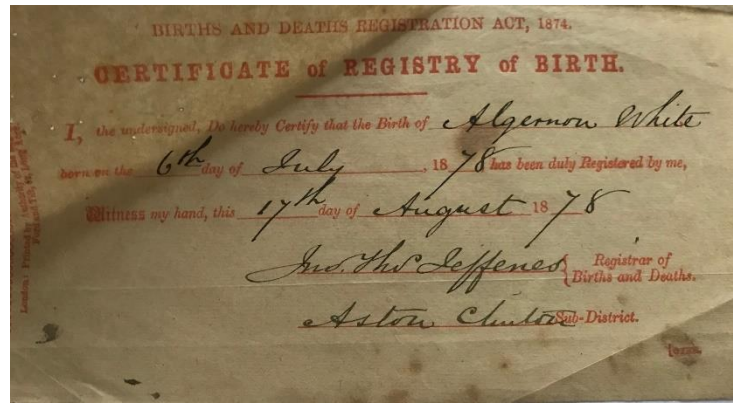 BIRTHS AND DEATHS REGISTRATION ACT, 1874.
CERTIFICATE of REGISTRY of BIRTH.
I, the undersigned, Do hereby Certify that the Birth of Algernon White
born on the 6th day of July, 1878 has been duly Registered by me,
Witness my hand, this 17th day of August 1878
Jno. Thos Jefferies { Registrar of
Births and Deaths.
Aston Clinton Sub-District.
[OVER.
London: Printed by Authority of the
Ford and Tilt, Long Acre.